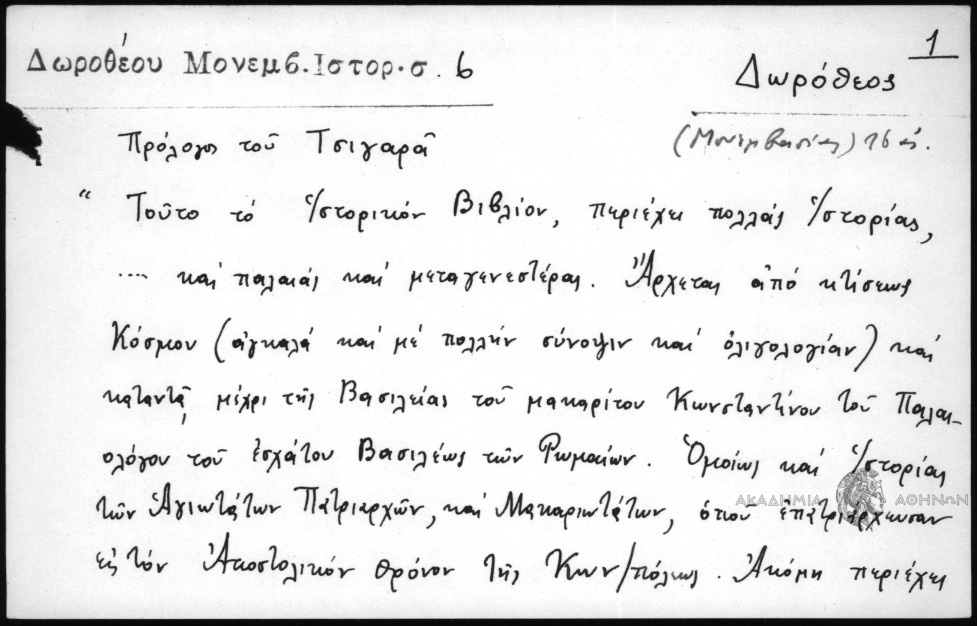 1
Δωροθέου Μονεμβ. Ιστορ. σ. 6
Δωρόθεος
(Μονεμβασίας) 16 αἰ.
Πρόλογος τοῦ Τσιγαρᾶ
“ Τοῦτο τό Ἱστορικόν Βιβλίον, περιέχει πολλάς Ἱστορίας,
.... καί παλαιάς καί μεταγενεστέρας. Ἄρχεται ἀπό κτίσεως
Κόσμου (ἀγκαλά καί μέ πολλήν σύνοψιν καί ὀλιγολογίαν) καί
καταντᾷ μέχρι τῆς Βασιλείας τοῦ μακαρίτου Κωνσταντίνου τοῦ Παλαι-
ολόγου τοῦ ἐσχάτου Βασιλέως τῶν Ρωμαίων. Ὁμοίως καί Ἱστορίας
τῶν Ἁγιωτάτων Πατριαρχῶν, καί Μακαριωτάτων, ὁποῦ ἐπατριάρχευσαν
εἰς τόν Ἀποστολικόν θρόνον τῆς Κων/πόλεως. Ἀκόμη περιέχει
ΑΚΑΔΗΜΙΑ ΑΘΗΝΩΝ